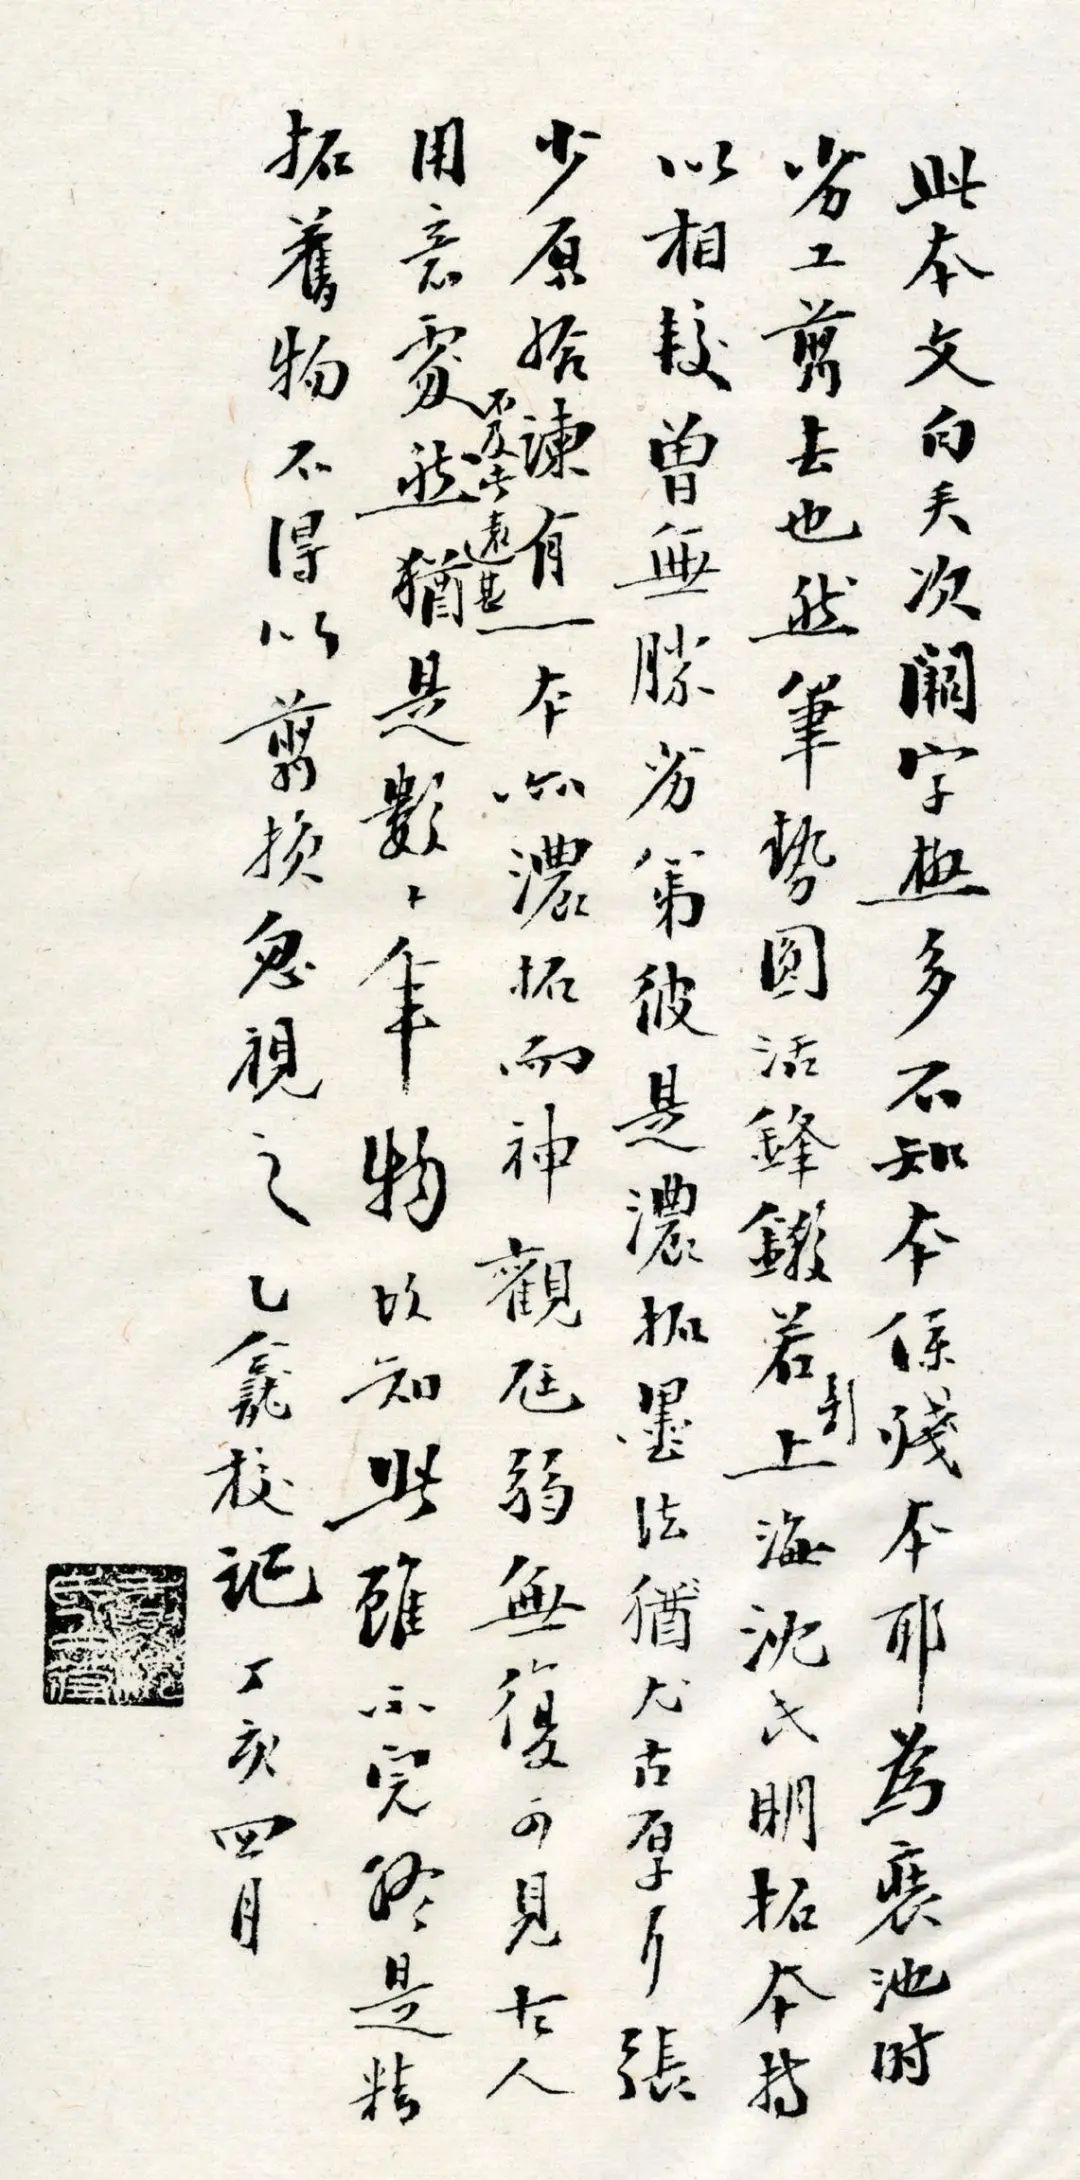 此本文句失次闕字極多不知本係殘本耶為裝池時
劣工翦去也然筆勢圓活鋒鎩若上海沈氏明拓本持
影
以相較曾無勝劣第彼是濃拓墨法猶尤古厚耳張
少原給諫有一本亦濃拓而神觀尪弱無復可見古人
不及此遠甚
用意處然猶是數十年物以知此雖不完終是精
拓舊物不得以翦損忽視之 乙龕校記 丁亥四月